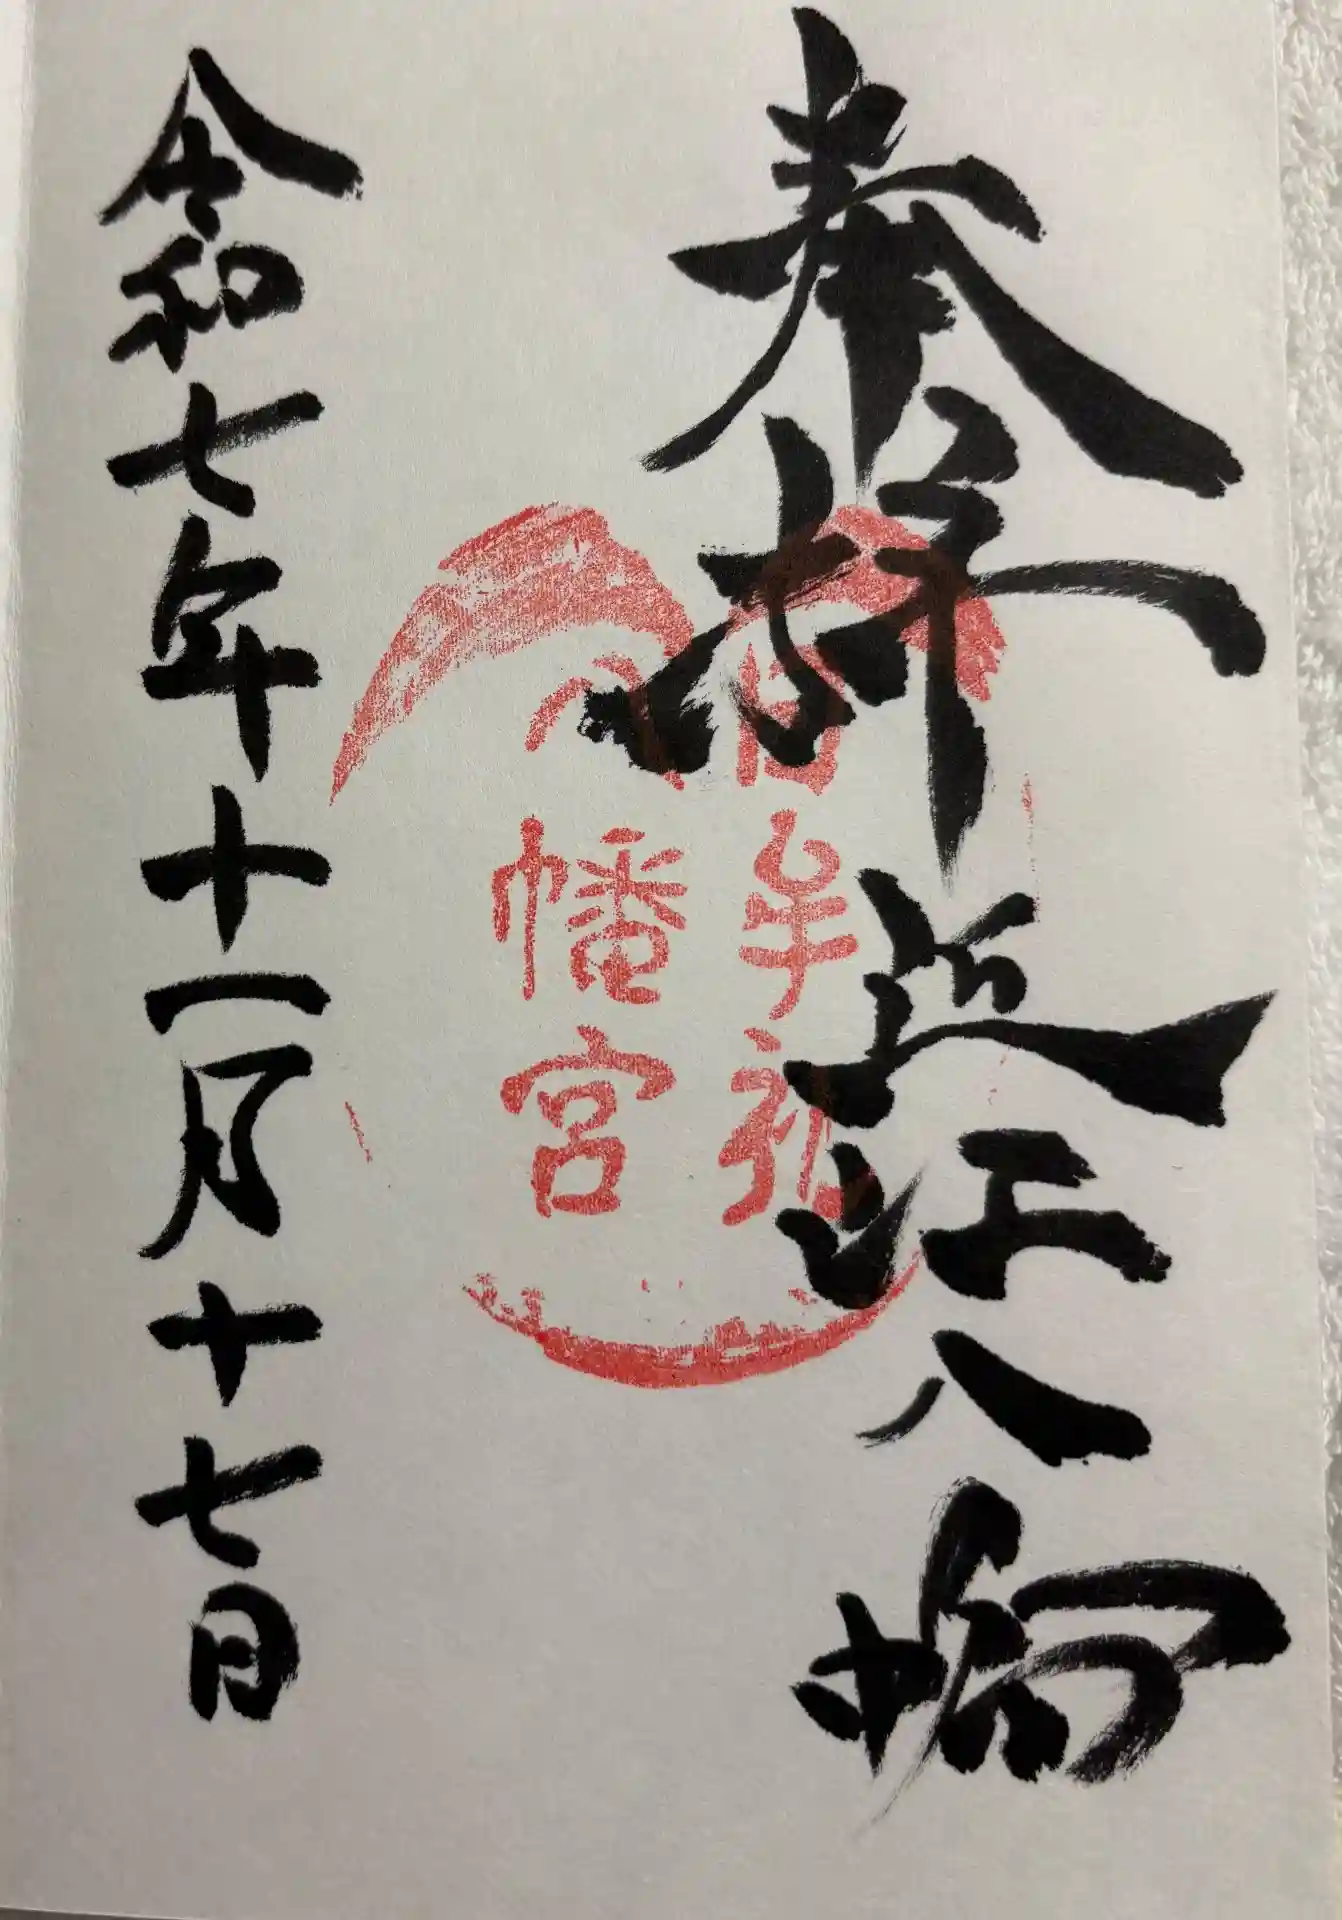 奉拝 近江八幡
日牟禮
八幡宮
令和七年十一月十七日